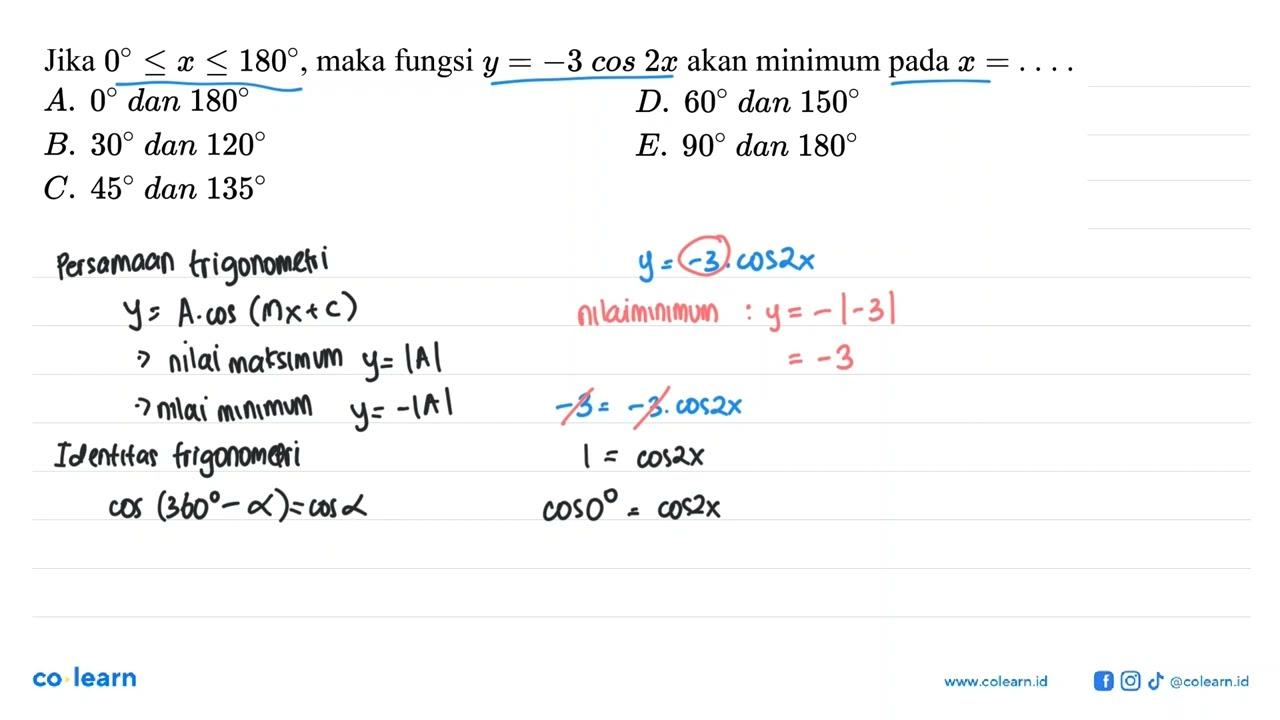 Jika 0° ≤ x ≤ 180°, maka fungsi y = −3 cos 2x akan minimum pada x = . . . .
A. 0° dan 180°
B. 30° dan 120°
C. 45° dan 135°
D. 60° dan 150°
E. 90° dan 180°
Persamaan trigonometri
y = A.cos (nx + c)
→ nilai maksimum y = |A|
→ nilai minimum y = -|A|
Identitas trigonometri
cos (360° - α) = cos α
y = -3. cos2x
nilai minimum : y = -|-3|
= -3
-3 = -3. cos2x
1 = cos2x
cos0° = cos2x
co·learn
www.colearn.id
@colearn.id